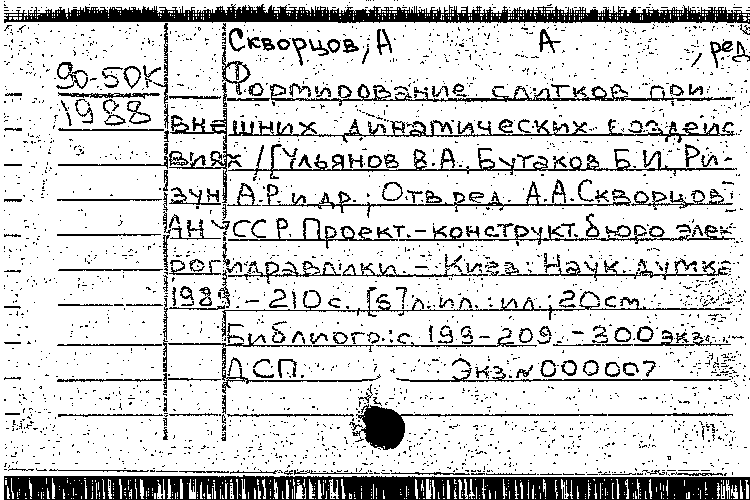 Скворцов, А А , ред
90-50К Формирование слитков при
1988
внешних динамических воздейс
виях / [Ульянов В.А., Бутаков Б.И., Ри-
зун А.Р. и др.; Отв. ред. А.А. Скворцов;
АН УССР. Проект.-конструкт. бюро элек
рогидравлики. - Киев: Наук. думка
1989 - 210 с., [6] л. ил.: ил.; 20 см
Библиогр.: с. 199-209. - 300 экз.
ДСП. Экз. № 000007